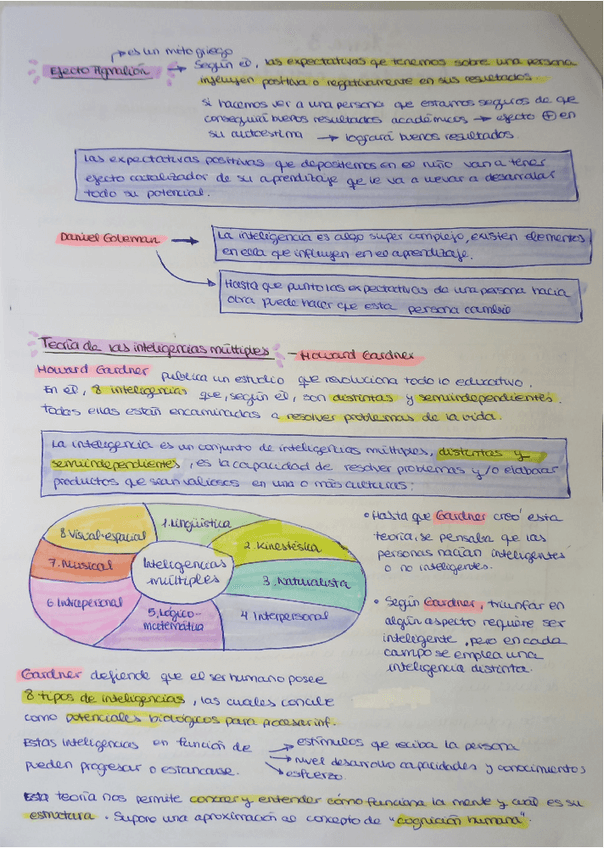 es un mito griego
Efecto Pigmalión → Según él, las expectativas que tenemos sobre una persona
influyen positiva o negativamente en sus resultados.
si hacemos ver a una persona que estamos seguros de que
conseguirá buenos resultados académicos → efecto ⊕ en
su autoestima → logrará buenos resultados
Las expectativas positivas que depositemos en el niño van a tener
efecto catalizador de su aprendizaje que le va a llevar a desarrollar
todo su potencial.
Daniel Goleman → La inteligencia es algo super complejo, existen elementos
en ella que influyen en el aprendizaje.
Hasta que punto las expectativas de una persona hacia
otra puede hacer que esta persona cambie
Teoría de las inteligencias múltiples - Howard Gardner
Howard Gardner publica un estudio que revoluciona todo lo educativo.
En él, 8 inteligencias que, según él, son distintas y semiindependientes.
Todas ellas están encaminadas a resolver problemas de la vida.
La inteligencia es un conjunto de inteligencias múltiples, distintas y
semiindependientes, es la capacidad de resolver problemas y/o elaborar
productos que sean valiosos en una o más culturas.
Inteligencias
múltiples
1. Lingüística
2. Kinestésica
3. Naturalista
4 Interpersonal
5. Lógico-
matemática
6 Intrapersonal
7. Musical
8 Visual-espacial
• Hasta que Gardner creó esta
teoría, se pensaba que las
personas nacían inteligentes
o no inteligentes.
• Según Gardner, triunfar en
algún aspecto requiere ser
inteligente, pero en cada
campo se emplea una
inteligencia distinta.
Gardner defiende que el ser humano posee
8 tipos de inteligencias, las cuales concibe
como potenciales biológicos para procesar inf.
Estas inteligencias en función de → estímulos que reciba la persona
pueden progresar o estancarse. → nivel desarrollo capacidades y conocimientos
→ esfuerzo
Esta teoría nos permite conocer y entender cómo funciona la mente y cuál es su
estructura. Supone una aproximación al concepto de "cognición humana".